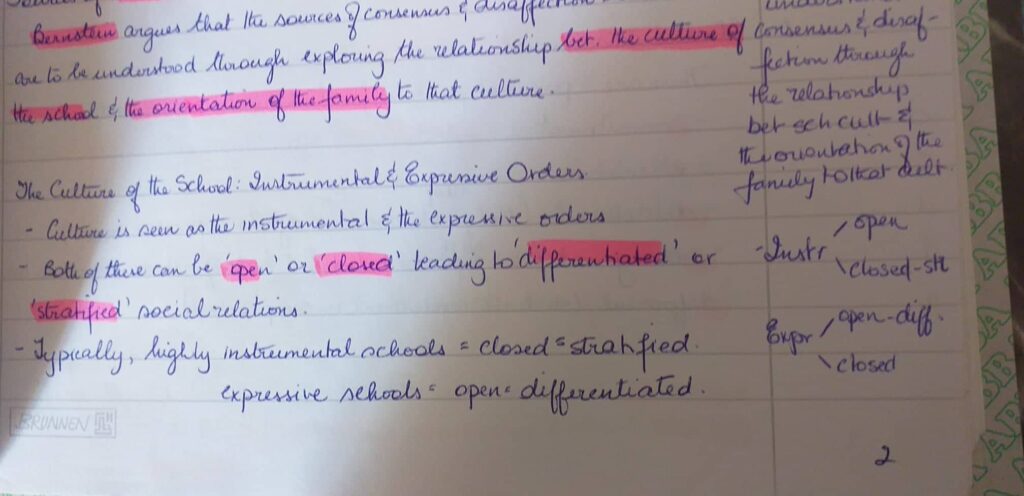 Bernstein argues that the sources of consensus & disaffection
are to be understood through exploring the relationship bet. the culture of
the school & the orientation of the family to that culture.
The Culture of the School: Instrumental & Expressive Orders
- Culture is seen as the instrumental & the expressive orders
- Both of these can be 'open' or 'closed' leading to 'differentiated' or
'stratified' social relations.
- Typically, highly instrumental schools = closed = stratified.
expressive schools = open = differentiated.
consensus & disaf-
fection through
the relationship
bet sch cult &
the orientation of the
family to that cult.
- Instr / open
\ closed - str
Expr / open - diff.
\ closed
BRUNNEN
2